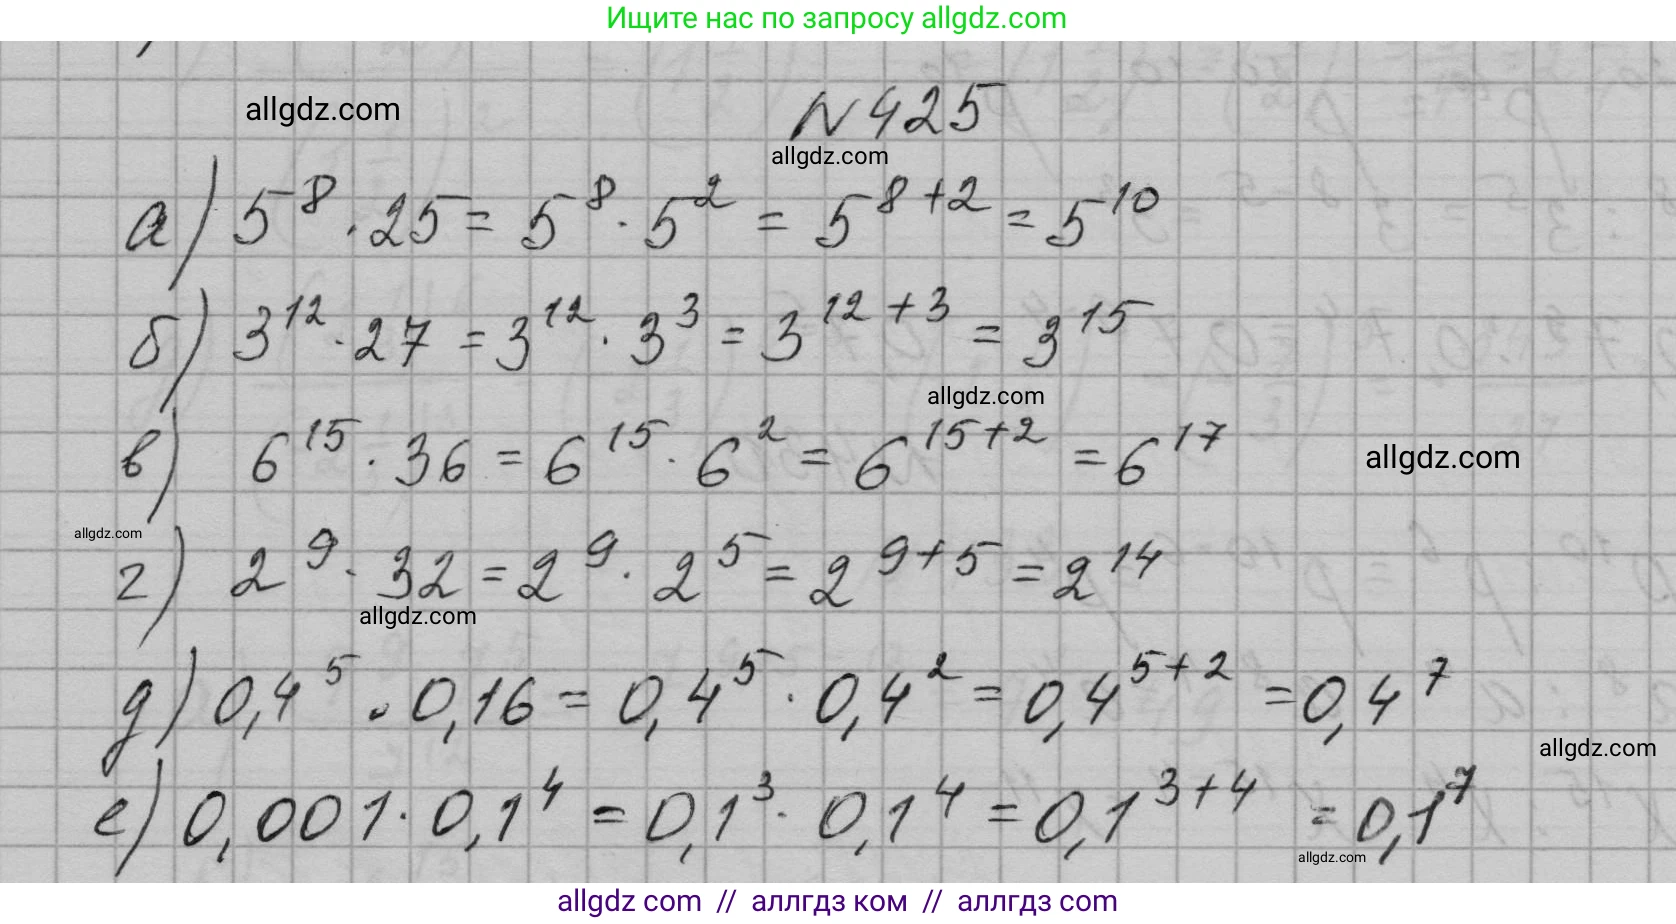 Ищите нас по запросу allgdz.com
allgdz.com
N 425
allgdz.com
а) 5⁸ · 25 = 5⁸ · 5² = 5⁸⁺² = 5¹⁰
б) 3¹² · 27 = 3¹² · 3³ = 3¹²⁺³ = 3¹⁵
allgdz.com
в) 6¹⁵ · 36 = 6¹⁵ · 6² = 6¹⁵⁺² = 6¹⁷
allgdz.com
allgdz.com
г) 2⁹ · 32 = 2⁹ · 2⁵ = 2⁹⁺⁵ = 2¹⁴
allgdz.com
д) 0,4⁵ · 0,16 = 0,4⁵ · 0,4² = 0,4⁵⁺² = 0,4⁷
allgdz.com
е) 0,001 · 0,1⁴ = 0,1³ · 0,1⁴ = 0,1³⁺⁴ = 0,1⁷
allgdz.com
allgdz.com // аллгдз ком // аллгдз.com